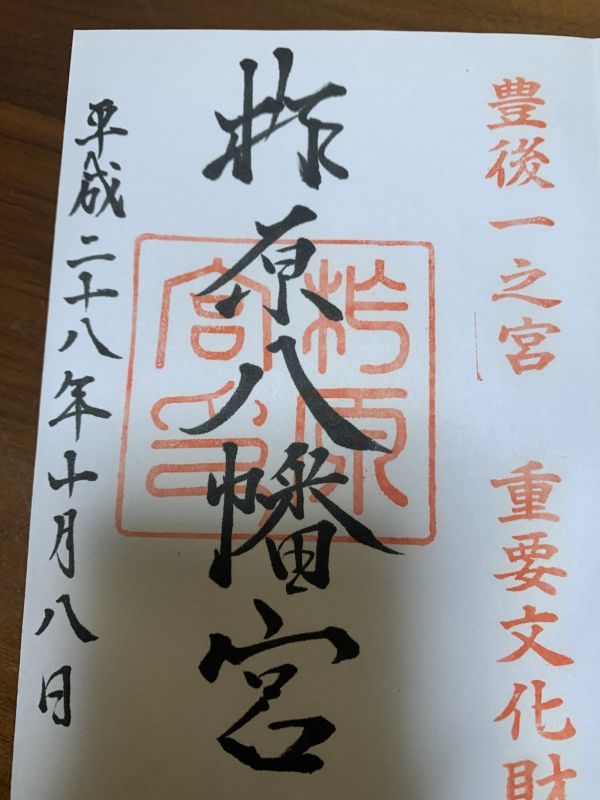 豊後一之宮 重要文化財
柞原八幡宮
柞原
宮印
平成二十八年十月八日